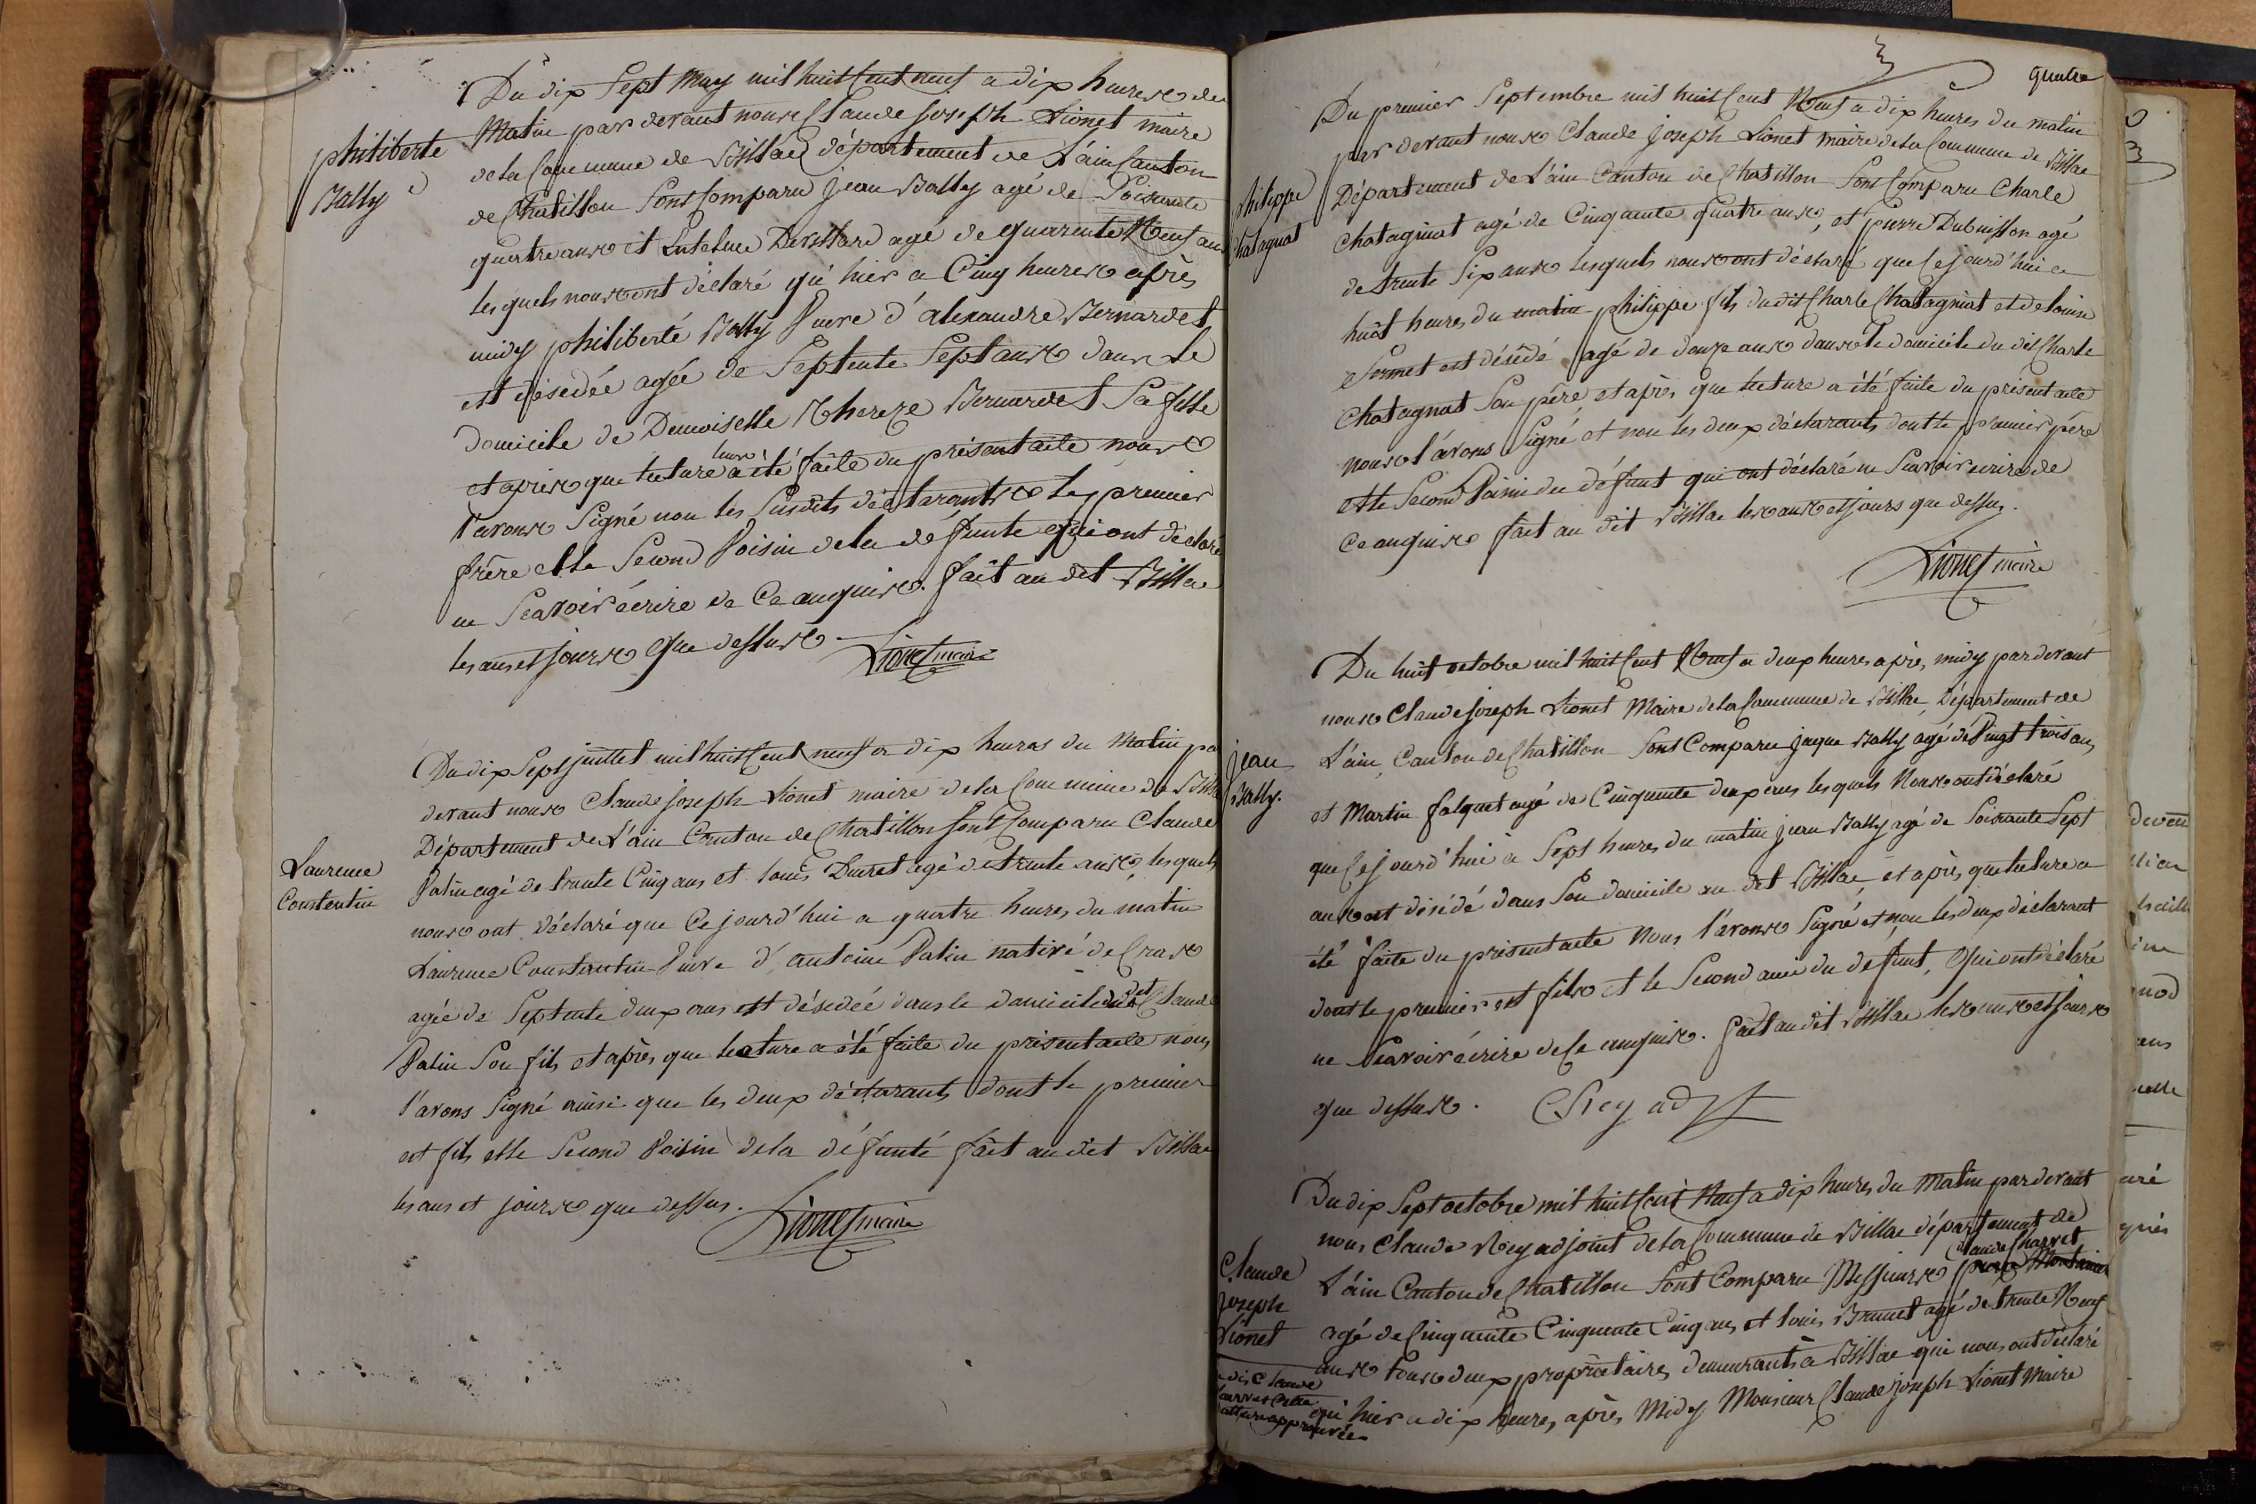 philiberte
Bally
Du dix Sept May mil huit Cent neuf a dix heures du
Matin par devant nous Claude joseph Lionet maire
de la Commune de Billac département de L'ain Canton
de Chatillon Sont Comparu jean Bally agé de Soixante
quatre ans et Devillard agé de quarente Neuf ans
les quels nous ont déclaré qu'hier a Cinq heures après
midy philiberte Bally Vuve d'alexandre Bernardet
est désedée agée de Septente Sept ans dans le
domicile de Demoiselle Thereze Bernardet Sa fille
et après que lecture leur a été faite du présent acte nous
l'avons Signé non les Susdits déclarants le premier
frère et le Second Voisin de la défunte qui ont déclaré
ne Scavoir écrire de Ce enquis. fait au dit Billac
les ans et jours que dessus
Lionet maire
Laurence
Constentin
Du dix Sept juillet mil huit Cent neuf a dix heures du Matin par
devant nous Claude joseph Lionet maire de la Commune de Billac
Département de L'ain Canton de Chatillon Sont Comparu Claude
Patin agé de trente Cinq ans et Louis Ducret agé de trente ans, les quels
nous ont déclaré que Ce jourd'hui a quatre heures du matin
Laurence Constentin Vuve d'antoine Patin native de Cras
agée de Septente deux ans est désedée dans le domicile dudit Claude
Patin Son fils et après que lecture a été faite du présent acte nous
l'avons Signé ainsi que les deux déclarants dont le premier
est fils et le Second Voisin de la défunte fait au dit Billac
les ans et jours que dessus.
Lionet maire
quatre
philippe
Chatagnat
Du premier Septembre mil huit Cent Neuf a dix heures du matin
par devant nous Claude joseph Lionet maire de la Commune de Billac
Département de L'ain Canton de Chatillon Sont Comparu Charle
Chatagnat agé de Cinquante quatre ans, et pierre Dubuisson agé
de trente Six ans lesquels nous ont déclaré que Ce jourd'hui a
huit heures du matin philippe fils du dit Charle Chatagnat et de Louise
Sermet est désédé agé de douze ans dans le domicile du dit Charle
Chatagnat Son père, et après que lecture a été faite du présent acte
nous l'avons Signé et non les deux déclarants dont le premier père
et le Second Voisin du défunt qui ont déclaré ne Scavoir écrire de
Ce enquis fait au dit Billac les ans et jours que dessus.
Lionet maire
jean
Bally.
Du huit octobre mil huit Cent Neuf a deux heures après midy par devant
nous Claude joseph Lionet Maire de la Commune de Billac, Département de
L'ain, Canton de Chatillon Sont Comparu jaque Bally agé de Vingt trois ans
et Martin falquet agé de Cinquante deux ans les quels Nous ont déclaré
que Ce jourd'hui a Sept heures du matin jean Bally agé de Soixante Sept
ans est désédé dans Son domicile au dit Billac, et après que lecture a
été faite du présent acte Nous l'avons Signé et non les deux déclarant
dont le premier est fils et le Second ami du défunt, qui ont déclaré
ne Scavoir écrire de Ce enquis. fait au dit Billac les ans et jours
que dessus.
C Rey adjt
Claude
joseph
Lionet
Du dix Sept octobre mil huit Cent Neuf a dix heures du Matin par devant
nous Claude Rey adjoint de la Commune de Billac département de
L'ain Canton de Chatillon Sont Comparu Messieurs Claude Charvet
agé de Cinquante Cinquente Cinq ans et Louis Brunet agé de trente Neuf
ans tous deux propriétaires demeurants a Billac qui nous ont déclaré
qu'hier a dix heures après Midy Monsieur Claude joseph Lionet Maire
dis Claude
Charvet
approuvée